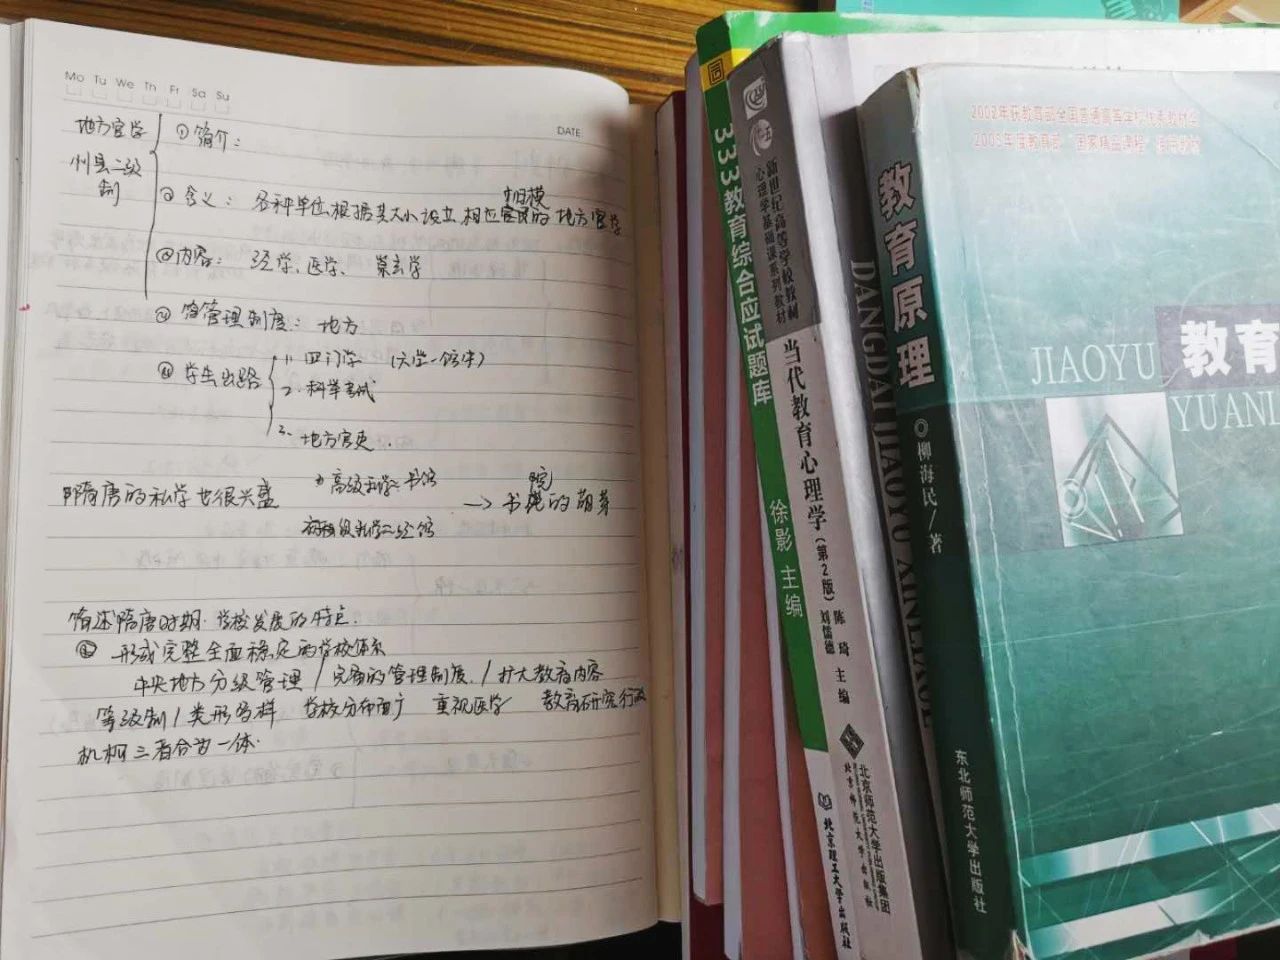 Mo Tu We Th Fr Sa Su
DATE
地方官学
州县二级
制
① 简介：
② 含义： 各种单位根据其大小设立相应 的地方官学
规模
③ 内容： 经学、医学、崇玄学
管理制度： 地方
学生出路
1. 四门学
2. 科举考试
3. 地方官吏.
隋唐的私学也很兴盛
高级私学：书馆
院
→ 书 的萌芽
级私学：经馆
简述隋唐时期.学校发展的特点.
① 形成完整全面稳定的学校体系
中央地方分级管理 / 完备的管理制度. / 扩大教育内容
等级制 / 类形多样 学校分布面广 重视医学 教育研究行政
机构三者合为一体.
333教育综合应试题库
徐影 主编
北京理工大学出版社
新世纪高等学校教材
心理学基础课系列教材
当代教育心理学（第2版）
陈琦 刘儒德 主编
北京师范大学出版集团
北京师范大学出版社
DANGDAI JIAOYU XINLIXUE
教育原理
◎柳海民/著
东北师范大学出版社
2002年获教育部全国普通高等学校优秀教材
2005年度教育部“国家精品课程”
JIAOYU
教育
YUANL